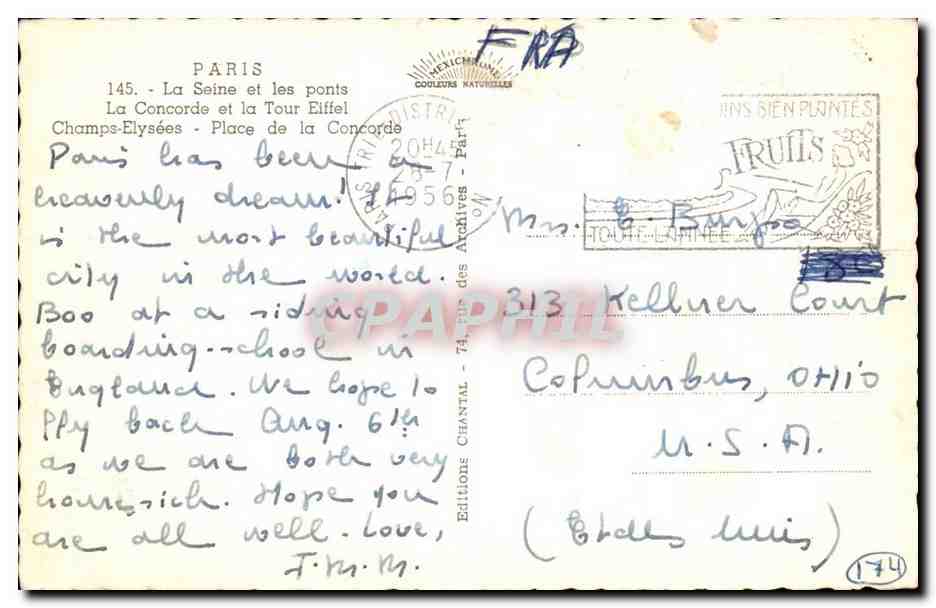 FRA
PARIS
145. - La Seine et les ponts
La Concorde et la Tour Eiffel
Champs-Elysées - Place de la Concorde
MEXICHROME
COULEURS NATURELLES
PARIS DISTRIBUTION
20H45
28-7
1956
INS BIEN PLANTÉS
FRUITS
TOUTE L'ANNÉE
Paris has been a
heavenly dream! It
is the most beautiful
city in the world.
Boo at a riding
boarding-school in
England. We hope to
fly back Aug. 6th
as we are both very
homesick. Hope you
are all well. Love,
J.M.M.
Editions CHANTAL - 74, rue des Archives - Paris
Mrs. E.
313 Kellner Court
Columbus, OHIO
U.S.A.
(Etats Unis)
174
CPAPHIL